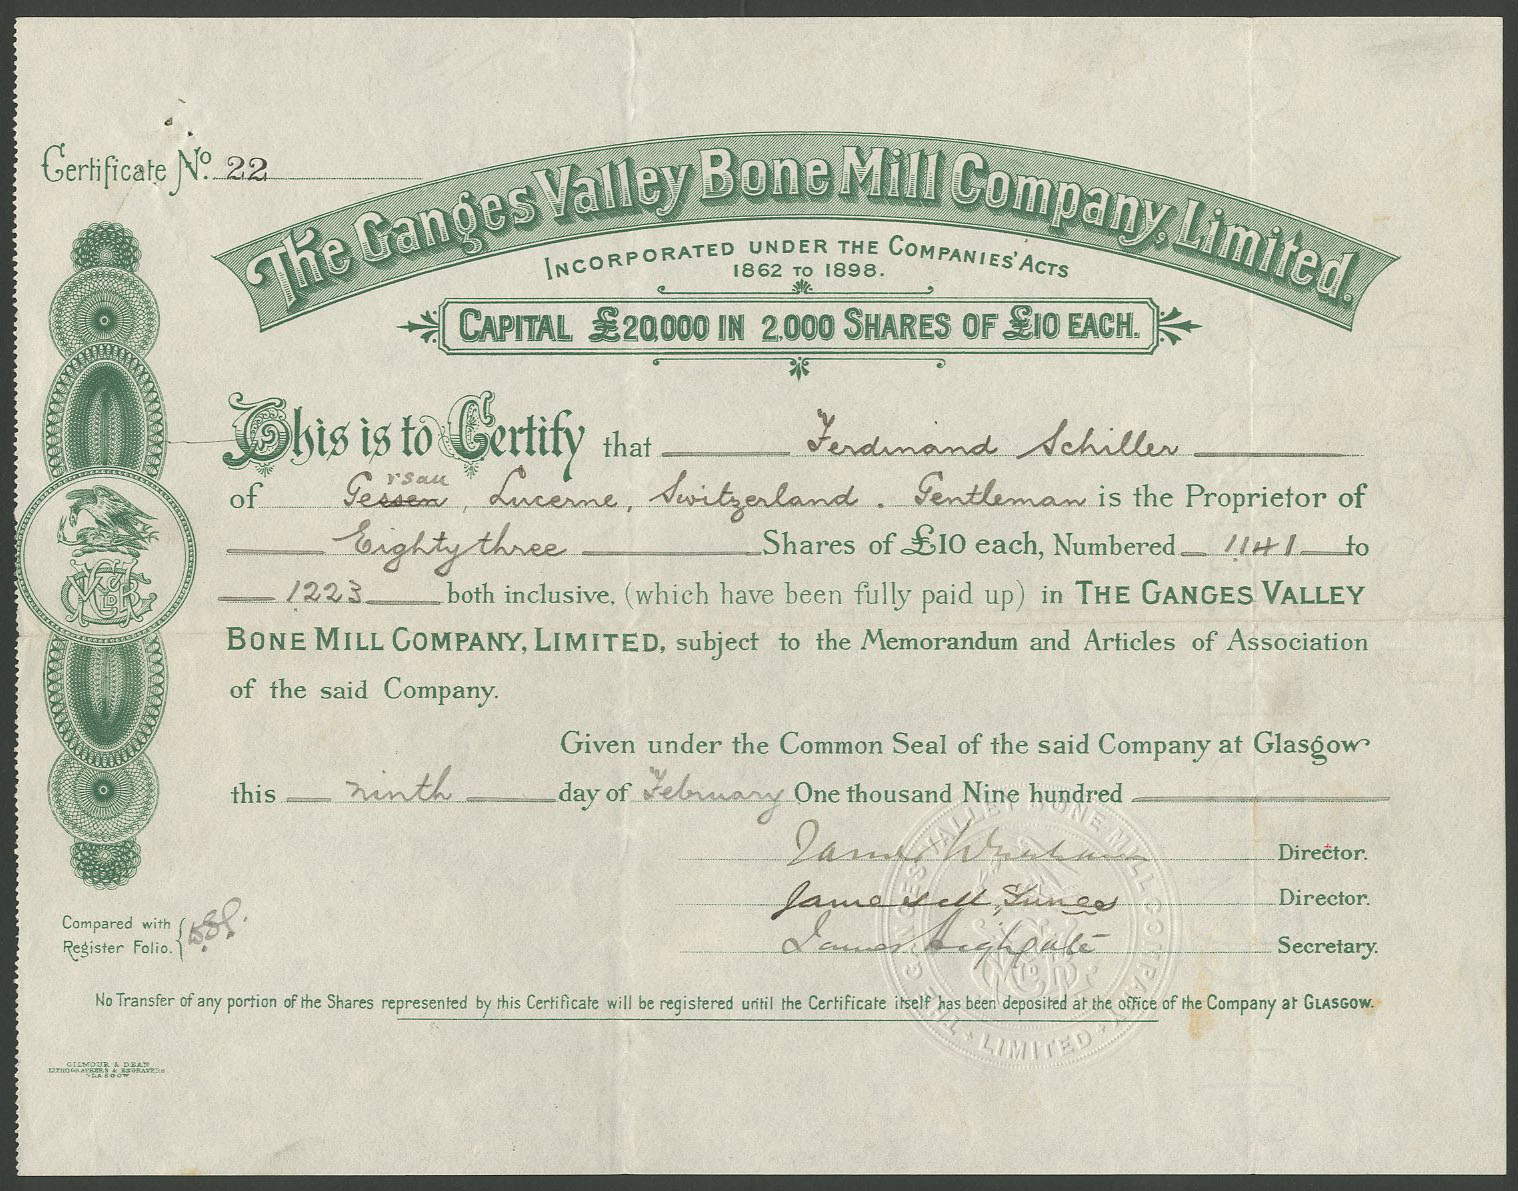 Certificate No. 22
The Ganges Valley Bone Mill Company, Limited.
INCORPORATED UNDER THE COMPANIES' ACTS
1862 TO 1898.
CAPITAL £20,000 IN 2,000 SHARES OF £10 EACH.
This is to Certify that Ferdinand Schiller
rsau
of Gessen, Lucerne, Switzerland. Gentleman is the Proprietor of
Eighty three Shares of £10 each, Numbered 1141 to
1223 both inclusive, (which have been fully paid up) in THE GANGES VALLEY
BONE MILL COMPANY, LIMITED, subject to the Memorandum and Articles of Association
of the said Company.
Given under the Common Seal of the said Company at Glasgow
this ninth day of February One thousand Nine hundred
James Director.
James Director.
James Highgate Secretary.
Compared with
Register Folio.
THE GANGES VALLEY BONE MILL COMPANY LIMITED
No Transfer of any portion of the Shares represented by this Certificate will be registered until the Certificate itself has been deposited at the office of the Company at GLASGOW.
GILMOUR & DEAN
LITHOGRAPHERS & ENGRAVERS
GLASGOW